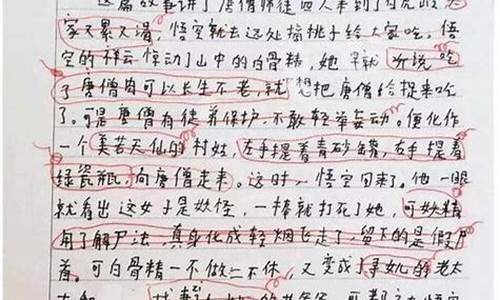 这篇故事讲了唐僧师徒四人来到了白虎岭
家又累又渴，悟空就去远处摘桃子给大家吃。悟
空的祥云惊动了山中的白骨精，她早就听说吃
了唐僧肉可以长生不老，就想把唐僧给捉来吃
了。可是唐僧有徒弟保护，不敢轻举妄动。便化作
一个美若天仙的村姑，左手提着青砂罐，右手提着
绿瓷瓶，向唐僧走来。这时，悟空回来了。他一眼
就看出这女子是妖怪，一棒就打死了她，可妖精
用了解尸法，真身化成轻烟飞走了，留下的是假尸
首。可白骨精一不做二不休，又变成了寻女儿的老太